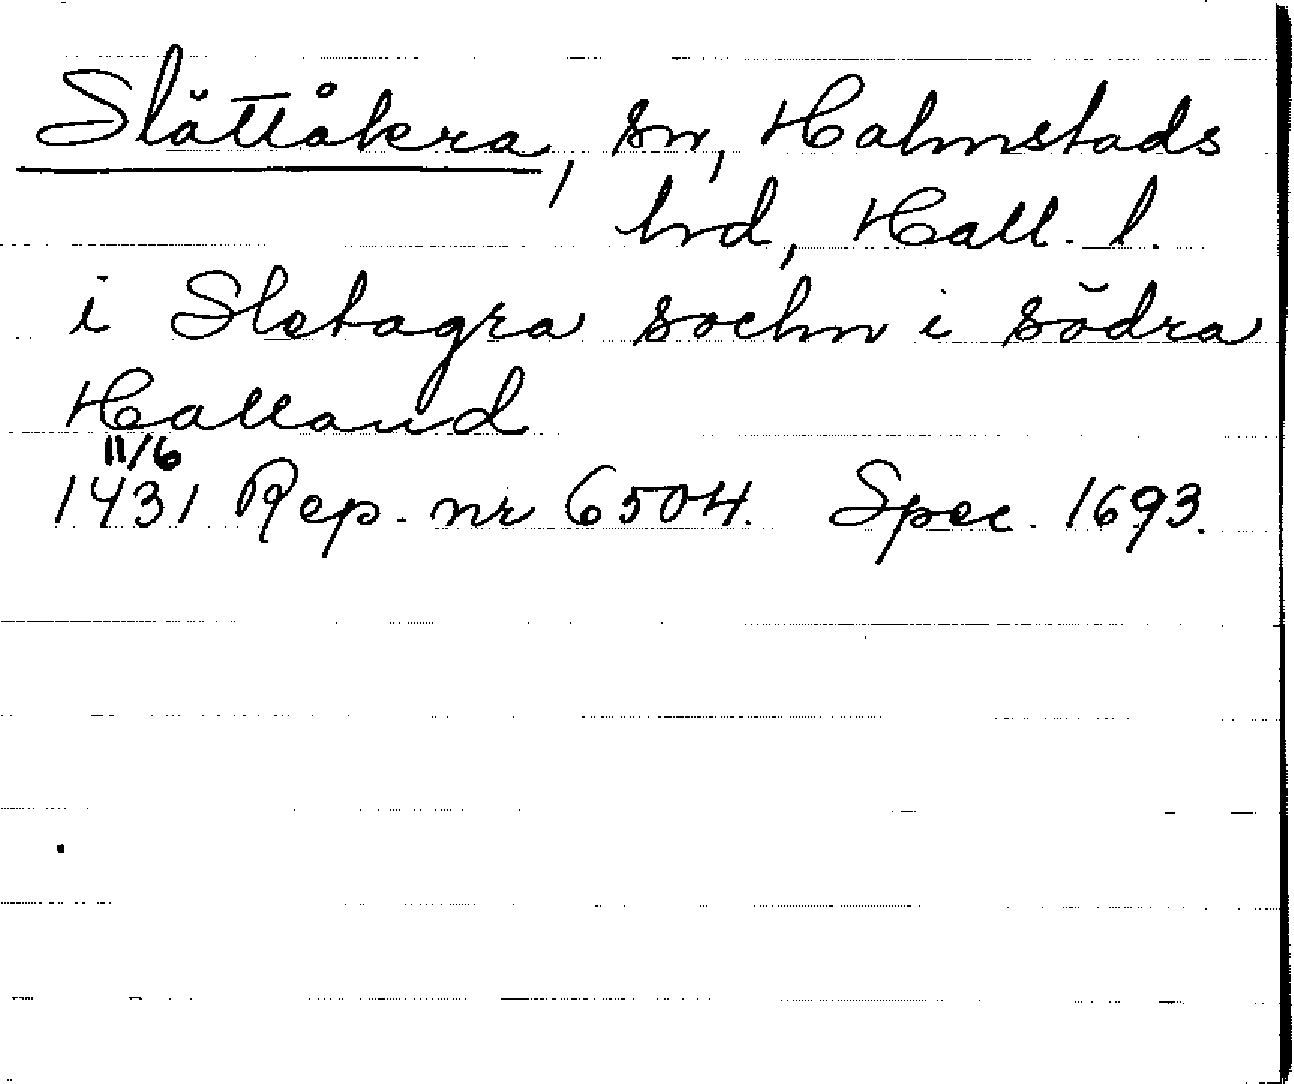 Slättåkra, sn, Halmstads
hrd, Hall. l.
i Sletagra sochn i södra
Halland
11/6
1431 Rep. nr 6504. Spec. 1693.